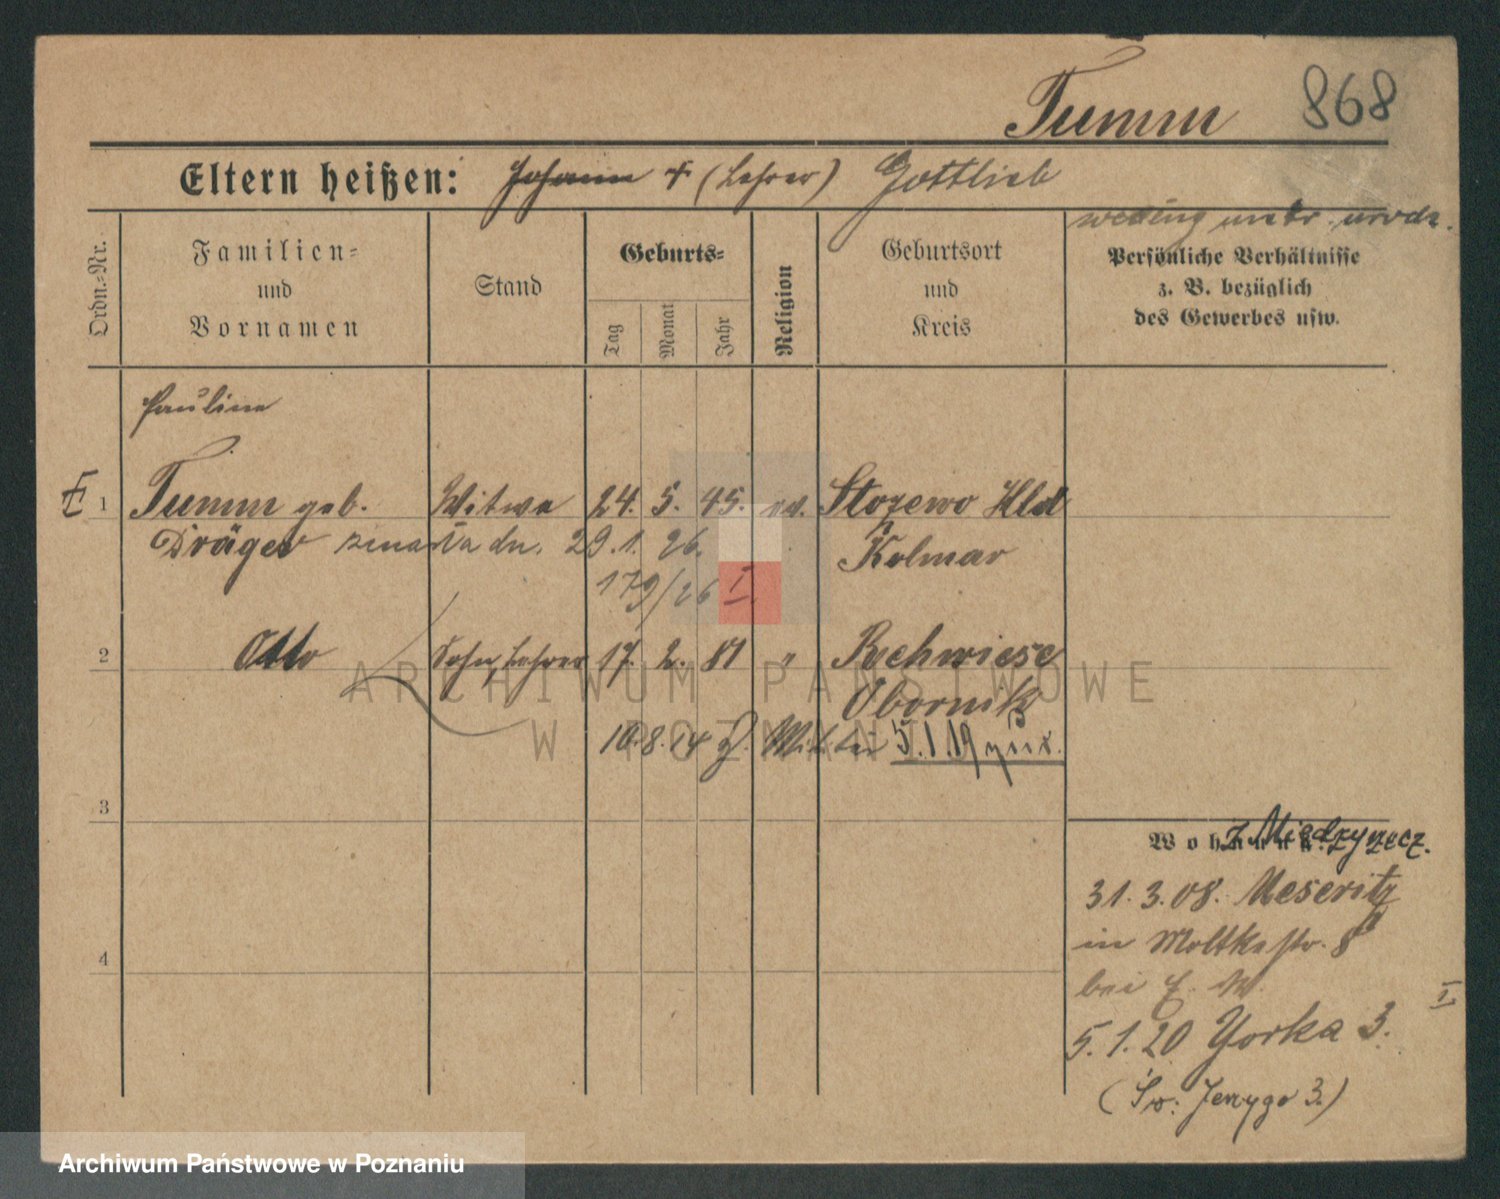 Tumm 868
Eltern heißen: Johann † (Lehrer) Gottlieb
według unter. urodz.
Ordn.-Nr.
Familien-
und
Vornamen
Stand
Geburts-
Tag
Monat
Jahr
Religion
Geburtsort
und
Kreis
Persönliche Verhältnisse
z. B. bezüglich
des Gewerbes usw.
Pauline
1 Tumm geb. Witwe 24. 5. 45. ev. Stozewo Hld
Dräger zmarła dn. 29. 1. 26. Kolmar
179/26 I.
2 Otto Sohn, Lehrer 17. 2. 81 " Rehwiese
Obornik
10.8.14 Mil. bei 5.1.19
3
4
z Międzyrzecz.
31. 3. 08. Meseritz
in Moltkestr. 8
bei E. M.
I
5. 1. 20 Yorka 3.
(Św. Jerzego 3.)
ARCHIWUM PAŃSTWOWE
W POZNANIU
Archiwum Państwowe w Poznaniu